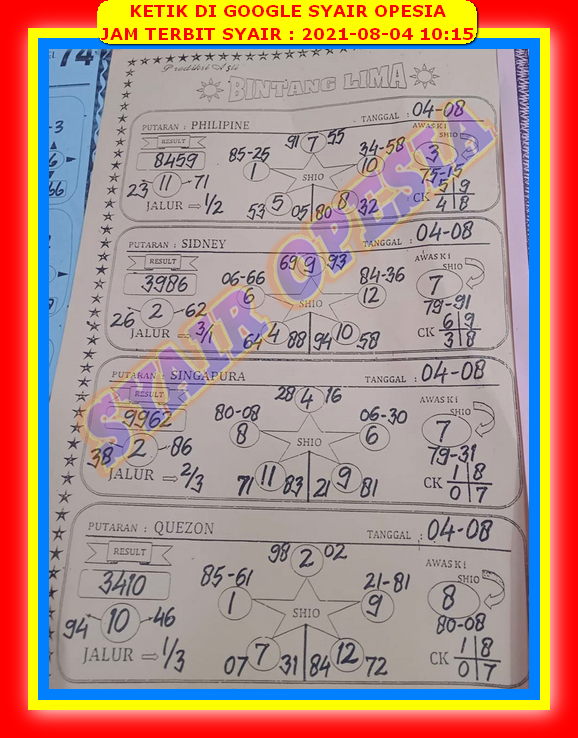 KETIK DI GOOGLE SYAIR OPESIA
JAM TERBIT SYAIR : 2021-08-04 10:15
74
Prediksi Asli
BINTANG LIMA
SYAIR OPESIA
PUTARAN : PHILIPINE TANGGAL : 04-08
RESULT
8459
23 11 71
JALUR ⇒ 1/2
91 7 55
85-25 1
34-58 10
SHIO
53 5 05 80 8 32
AWAS KI
SHIO
3
75-15
CK 5 9
4 8
PUTARAN : SIDNEY TANGGAL : 04-08
RESULT
3986
26 2 62
JALUR ⇒ 3/1
69 9 93
06-66 6
84-36 12
SHIO
64 4 88 94 10 58
AWAS KI
SHIO
7
79-91
CK 6 9
3 8
PUTARAN : SINGAPURA TANGGAL : 04-08
RESULT
9962
38 2 86
JALUR ⇒ 2/3
28 4 16
80-08 8
06-30 6
SHIO
71 11 83 21 9 81
AWAS KI
SHIO
7
79-31
CK 1 8
0 7
PUTARAN : QUEZON TANGGAL : 04-08
RESULT
3410
94 10 46
JALUR ⇒ 1/3
98 2 02
85-61 1
21-81 9
SHIO
07 7 31 84 12 72
AWAS KI
SHIO
8
80-08
CK 1 8
0 7